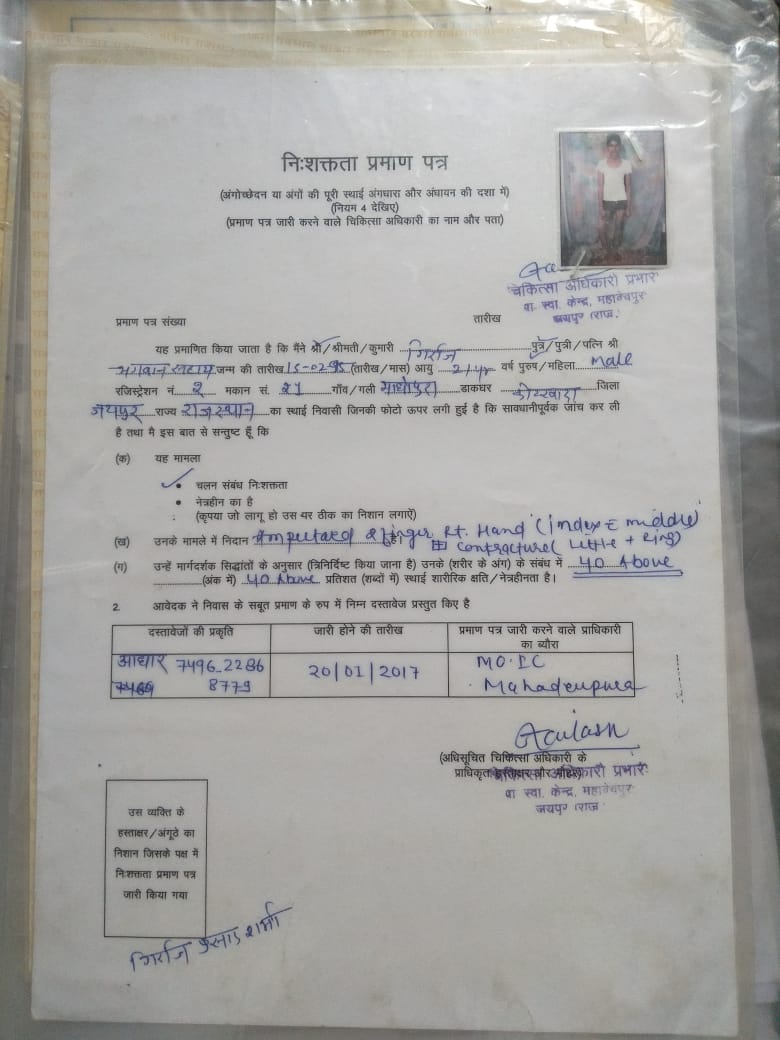 निःशक्तता प्रमाण पत्र
(अंगोच्छेदन या अंगों की पूरी स्थाई अंगघारा और अंघायन की दशा में)
(नियम 4 देखिए)
(प्रमाण पत्र जारी करने वाले चिकित्सा अधिकारी का नाम और पता)
चिकित्सा अधिकारी प्रभारी
प्रा. स्वा. केन्द्र, महादेवपुरा
जयपुर (राज.)
प्रमाण पत्र संख्या तारीख
यह प्रमाणित किया जाता है कि मैंने श्री/श्रीमती/कुमारी गिर्राज पुत्र/पुत्री/पत्नि श्री
भगवान सहाय जन्म की तारीख 15-02-95 (तारीख/मास) आयु 21yr वर्ष पुरुष/महिला Male
रजिस्ट्रेशन नं. 2 मकान सं. 21 गाँव/गली माधोपुरा डाकघर जिला
जयपुर राज्य राजस्थान का स्थाई निवासी जिनकी फोटो ऊपर लगी हुई है कि सावधानीपूर्वक जांच कर ली
है तथा मै इस बात से सन्तुष्ट हूँ कि
(क) यह मामला
• चलन संबंध निःशक्तता
• नेत्रहीन का है
(कृपया जो लागू हो उस पर ठीक का निशान लगाऐं)
(ख) उनके मामले में निदान Ampectated 2 finger Rt. Hand (index c middle) है।
contracture (Little + Ring)
(ग) उन्हें मार्गदर्शक सिद्धांतों के अनुसार (त्रिनिर्दिष्ट किया जाना है) उनके (शरीर के अंग) के संबंध में 40 Above
(अंक में) 40 Above प्रतिशत (शब्दों में) स्थाई शारीरिक क्षति/नेत्रहीनता है।
2. आवेदक ने निवास के सबूत प्रमाण के रुप में निम्न दस्तावेज प्रस्तुत किए है
दस्तावेजों की प्रकृति जारी होने की तारीख प्रमाण पत्र जारी करने वाले प्राधिकारी का ब्यौरा
आधार 7496-2286 8779 20/01/2017 MO.IC Mahadevpura
(अधिसूचित चिकित्सा अधिकारी के
प्राधिकृत हस्ताक्षर और मोहर)
चिकित्सा अधिकारी प्रभारी
प्रा. स्वा. केन्द्र, महादेवपुरा
जयपुर (राज.)
उस व्यक्ति के
हस्ताक्षर/अंगूठे का
निशान जिसके पक्ष में
निःशक्तता प्रमाण पत्र
जारी किया गया
गिर्राज प्रसाद शर्मा